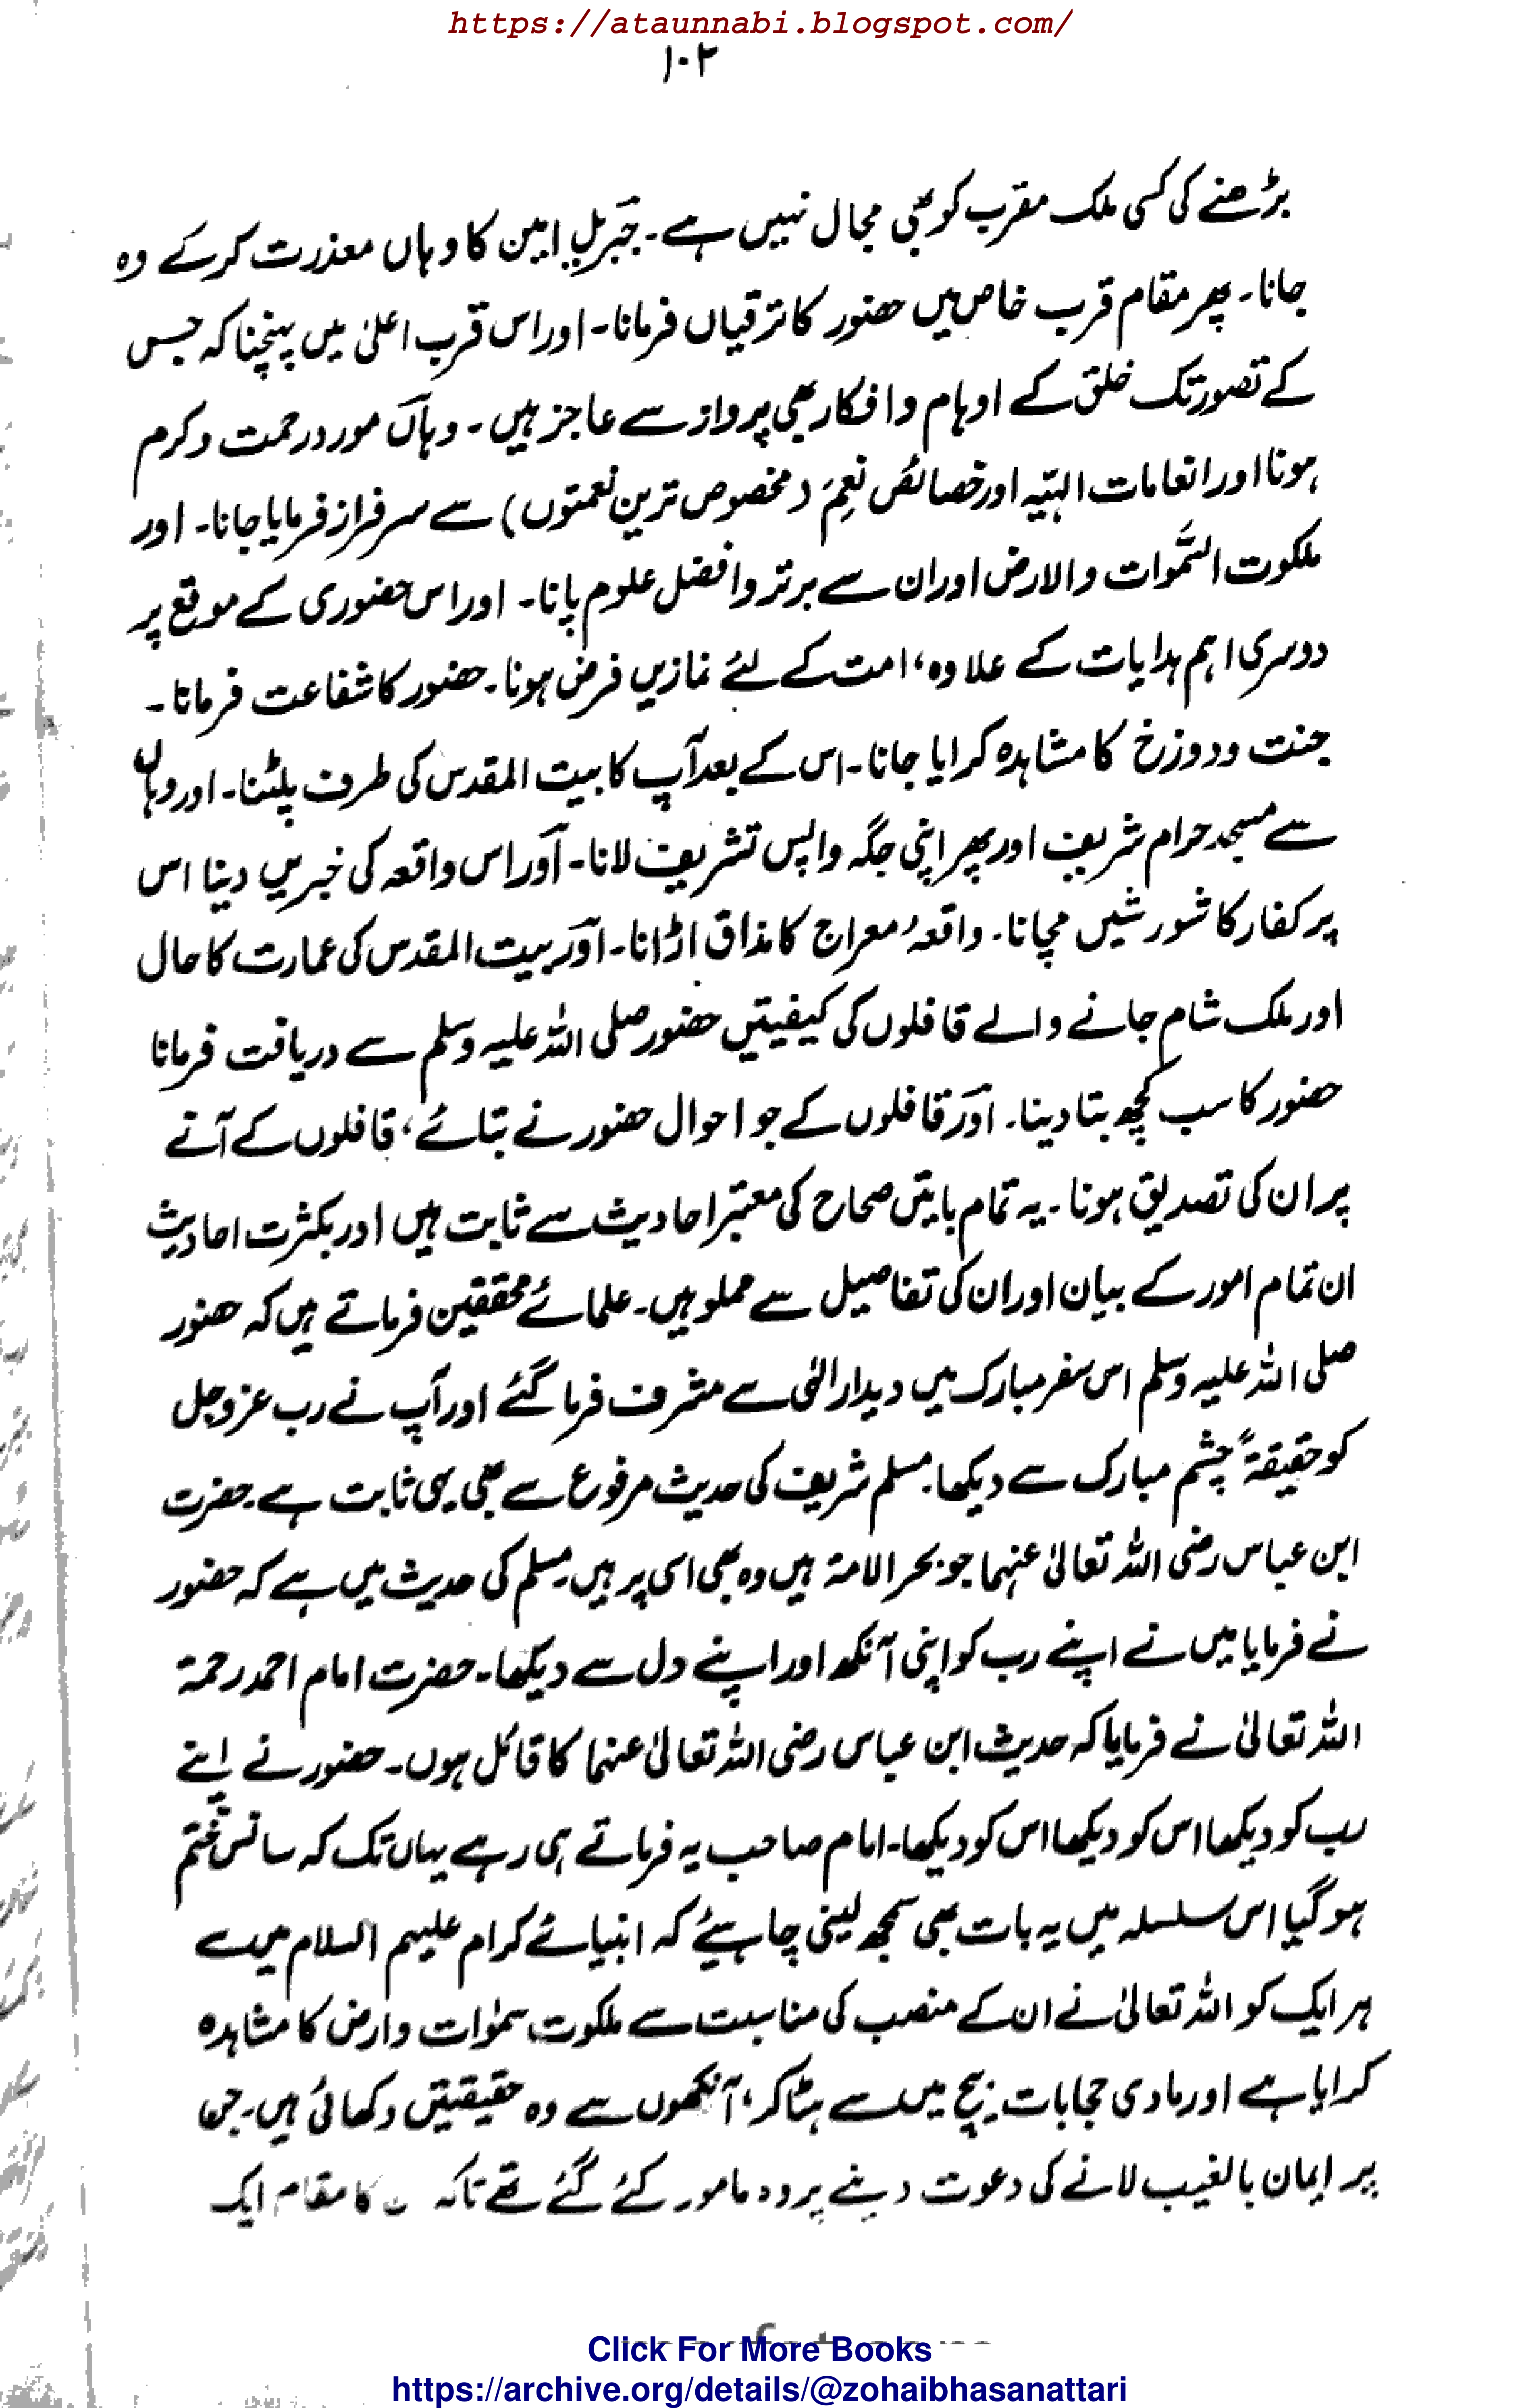 https://ataunnabi.blogspot.com/
۱۰۲
بڑھنے کی کسی ملک مقرب کو بھی مجال نہیں ہے۔ جبریلِ امین کا وہاں معذرت کرکے رہ
جانا۔ پھر مقام قرب خاص میں حضور کا ترقیاں فرمانا۔ اور اس قرب اعلیٰ میں پہنچنا کہ جس
کے تصور تک خلق کے اوہام و افکار بھی پرواز سے عاجز ہیں۔ وہاں مورد رحمت و کرم
ہونا اور انعامات الٰہیہ اور خصائص نِعَمْ (مخصوص ترین نعمتوں) سے سرفراز فرمایا جانا۔ اور
ملکوت السَّمٰوات والارض اور ان سے برتر و افضل علوم پانا۔ اور اس حضوری کے موقع پر
دوسری اہم ہدایات کے علاوہ، امت کے لئے نمازیں فرض ہونا۔ حضور کا شفاعت فرمانا۔
جنت و دوزخ کا مشاہدہ کرایا جانا۔ اس کے بعد آپ کا بیت المقدس کی طرف پلٹنا۔ اور وہاں
سے مسجد حرام شریف اور پھر اپنی جگہ واپس تشریف لانا۔ اور اس واقعہ کی خبریں دینا اس
پر کفار کا شورشیں مچانا۔ واقعۂ معراج کا مذاق اڑانا۔ اور بیت المقدس کی عمارت کا حال
اور ملک شام جانے والے قافلوں کی کیفیتیں حضور صلی اللہ علیہ وسلم سے دریافت فرمانا
حضور کا سب کچھ بتا دینا۔ اور قافلوں کے جو احوال حضور نے بتائے، قافلوں کے آنے
پر ان کی تصدیق ہونا۔ یہ تمام باتیں صحاح کی معتبر احادیث سے ثابت ہیں اور بکثرت احادیث
ان تمام امور کے بیان اور ان کی تفاصیل سے مملو ہیں۔ علمائے محققین فرماتے ہیں کہ حضور
صلی اللہ علیہ وسلم اس سفر مبارک میں دیدار الٰہی سے مشرف فرمائے گئے اور آپ نے رب عزوجل
کو حقیقۃً چشم مبارک سے دیکھا۔ مسلم شریف کی حدیث مرفوع سے بھی یہی ثابت ہے۔ حضرت
ابن عباس رضی اللہ تعالیٰ عنہما جو بحر الامۃ ہیں وہ بھی اسی پر ہیں۔ مسلم کی حدیث میں ہے کہ حضور
نے فرمایا میں نے اپنے رب کو اپنی آنکھ اور اپنے دل سے دیکھا۔ حضرت امام احمد رحمۃ
اللہ تعالیٰ نے فرمایا کہ حدیث ابن عباس رضی اللہ تعالیٰ عنہما کا قائل ہوں۔ حضور نے اپنے
رب کو دیکھا اس کو دیکھا اس کو دیکھا۔ امام صاحب یہ فرماتے ہی رہے یہاں تک کہ سانس ختم
ہو گیا اس سلسلہ میں یہ بات بھی سمجھ لینی چاہیئے کہ انبیائے کرام علیہم السلام میں سے
ہر ایک کو اللہ تعالیٰ نے ان کے منصب کی مناسبت سے ملکوت سمٰوات و ارض کا مشاہدہ
کرایا ہے اور مادی حجابات بیچ میں سے ہٹا کر، آنکھوں سے وہ حقیقیتیں دکھائی ہیں۔ جن
پر ایمان بالغیب لانے کی دعوت دینے پر وہ مامور کئے گئے تھے تاکہ کا مقام ایک
Click For More Books
https://archive.org/details/@zohaibhasanattari